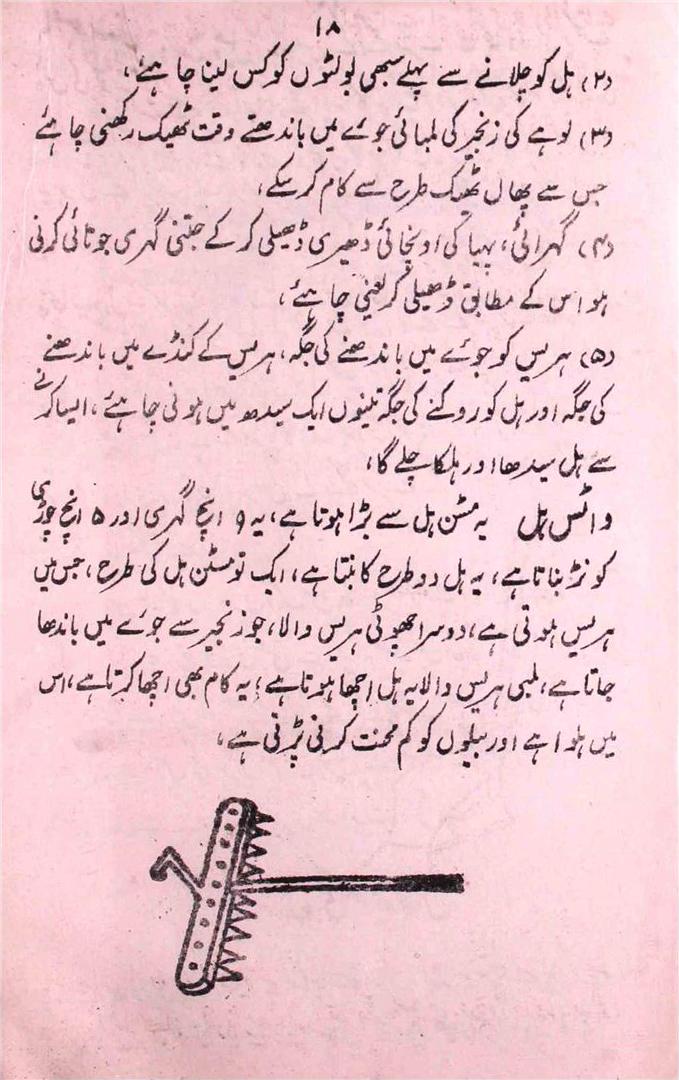 ۱۸
(۲) ہل کو چلانے سے پہلے سبھی بولٹوں کو کس لینا چاہئے،
(۳) لوہے کی زنجیر کی لمبائی جوئے میں باندھتے وقت ٹھیک رکھنی چاہئے
جس سے پھال ٹھیک طرح سے کام کر سکے،
(۴) گہرائی، پہیا کی اونچائی ڈھبری ڈھیلی کر کے جتنی گہری جوتائی کرنی
ہو اس کے مطابق ڈھیلی کر لینی چاہئے،
(۵) ہریس کو جوئے میں باندھنے کی جگہ، ہریس کے کنڈے میں باندھنے
کی جگہ اور ہل کو روکنے کی جگہ تینوں ایک سیدھ میں ہونی چاہئے، ایسا کرنے
سے ہل سیدھا اور ہلکا چلے گا،
واٹس ہل یہ مسٹن ہل سے بڑا ہوتا ہے، یہ ۹ انچ گہری اور ۵ انچ چوڑی
کونڑ بناتا ہے، یہ ہل دو طرح کا بنتا ہے، ایک تو مسٹن ہل کی طرح، جس میں
ہریس ہوتی ہے، دوسرا چھوٹی ہریس والا، جو زنجیر سے جوئے میں باندھا
جاتا ہے، لمبی ہریس والا یہ ہل اچھا ہوتا ہے؛ یہ کام بھی اچھا کرتا ہے، اس
میں ہلوا ہے اور بیلوں کو کم محنت کرنی پڑتی ہے،